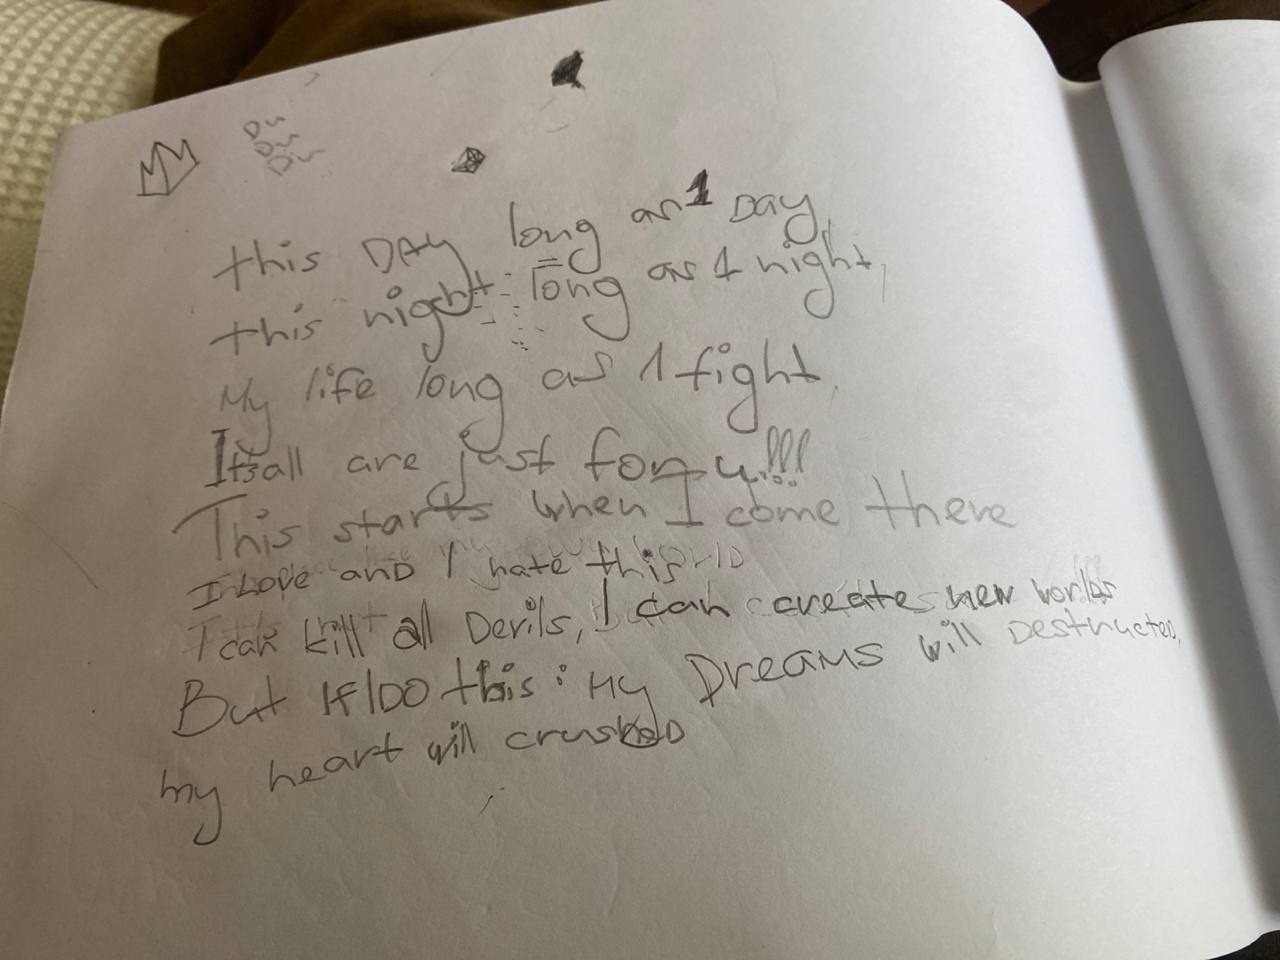 this DAy long as 1 Day,
this night long as 1 night,
My life long as 1 fight.
Itsall are just for u!!!
This starts when I come there
I Love and I hate this
I can kill all Devils, I can create new worlds
But If I DO this : My Dreams will Destructed,
my heart will crushed